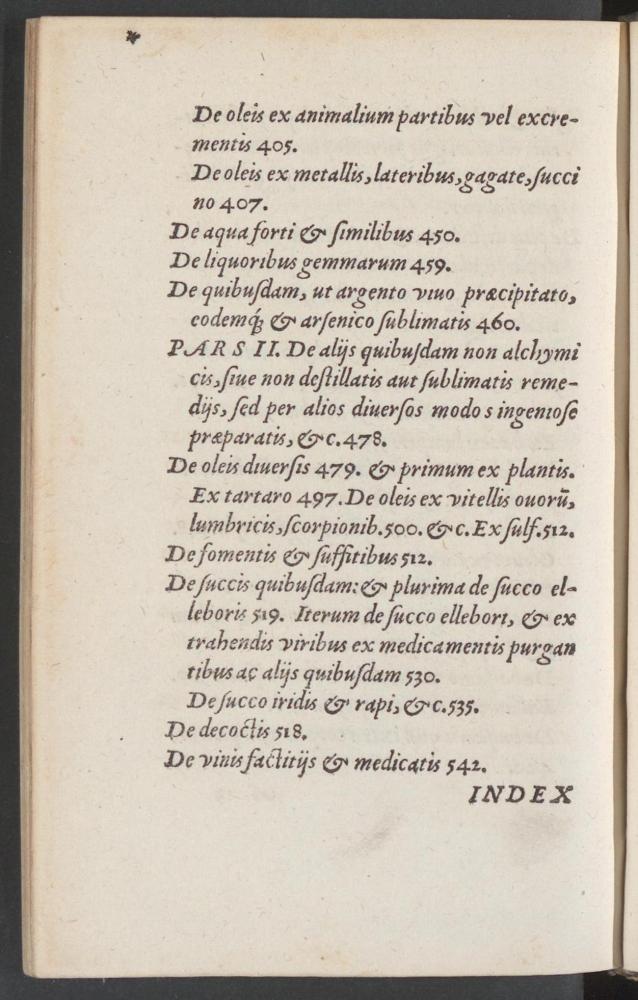 De oleis ex animalium partibus vel excre-
mentis 405.
De oleis ex metallis, lateribus, gagate, ſucci
no 407.
De aqua forti & ſimilibus 450.
De liquoribus gemmarum 459.
De quibuſdam, ut argento viuo præcipitato,
eodemq́ꝫ & arſenico ſublimatis 460.
PARS II. De alijs quibuſdam non alchymi
cis, ſiue non deſtillatis aut ſublimatis reme-
dijs, ſed per alios diuerſos modos ingenioſe
præparatis, &c. 478.
De oleis diuerſis 479. & primum ex plantis.
Ex tartaro 497. De oleis ex vitellis ouorū,
lumbricis, ſcorpionib. 500. &c. Ex ſulf. 512.
De fomentis & ſuffitibus 512.
De ſuccis quibuſdam: & plurima de ſucco el-
leboris 519. Iterum de ſucco ellebori, & ex
trahendis viribus ex medicamentis purgan
tibus ac alijs quibuſdam 530.
De ſucco iridis & rapi, &c. 535.
De decoctis 518.
De vinis factitijs & medicatis 542.
INDEX